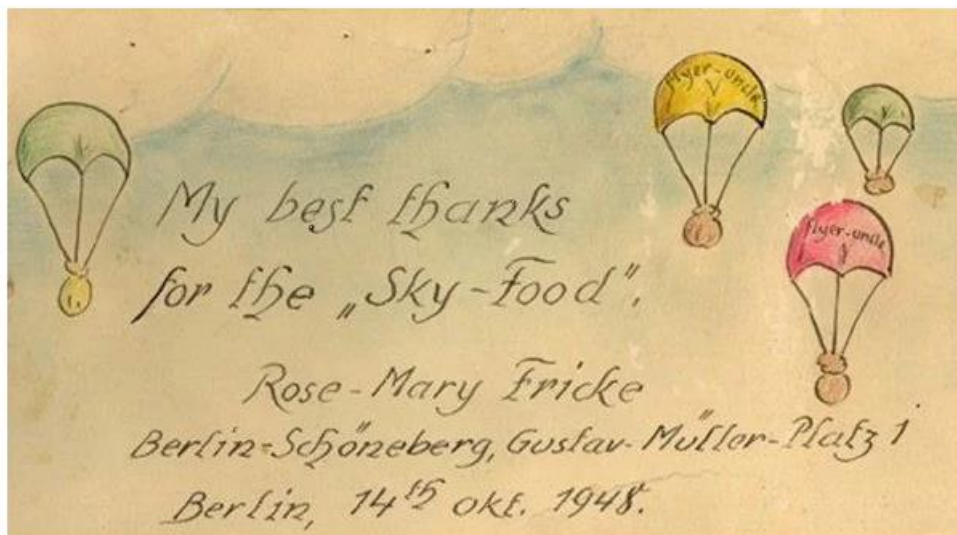 flyer-uncle
My best thanks
flyer-uncle
for the „Sky-Food".
Rose-Mary Fricke
Berlin=Schöneberg, Gustav-Müller-Platz 1
Berlin, 14th Okt. 1948.